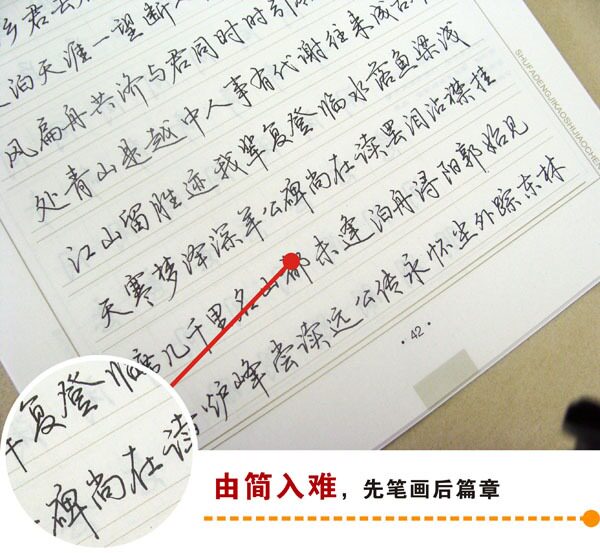 乡君去
泊天涯一望断
风扁舟共济与君同时时引
处青山是越中人事有代谢往来成古
江山留胜迹我辈复登临水落鱼梁浅
天寒梦泽深羊公碑尚在读罢泪沾襟挂
席几千里名山都未逢泊舟浔阳郭始见
炉峰尝读远公传永怀尘外踪东林
·42·
SHUFADENGJIKAOSHIJIAOCHEN
复登临
碑尚在读
由简入难，先笔画后篇章